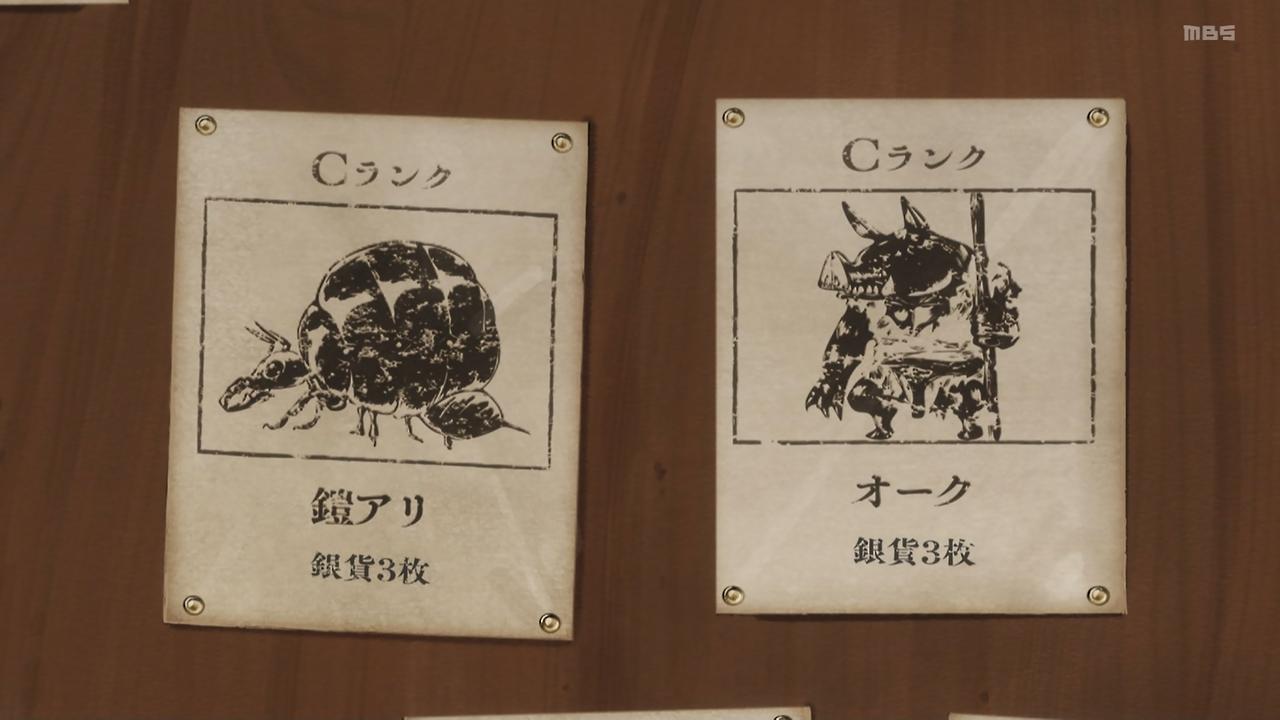 MBS
Cランク
鎧アリ
銀貨3枚
Cランク
オーク
銀貨3枚